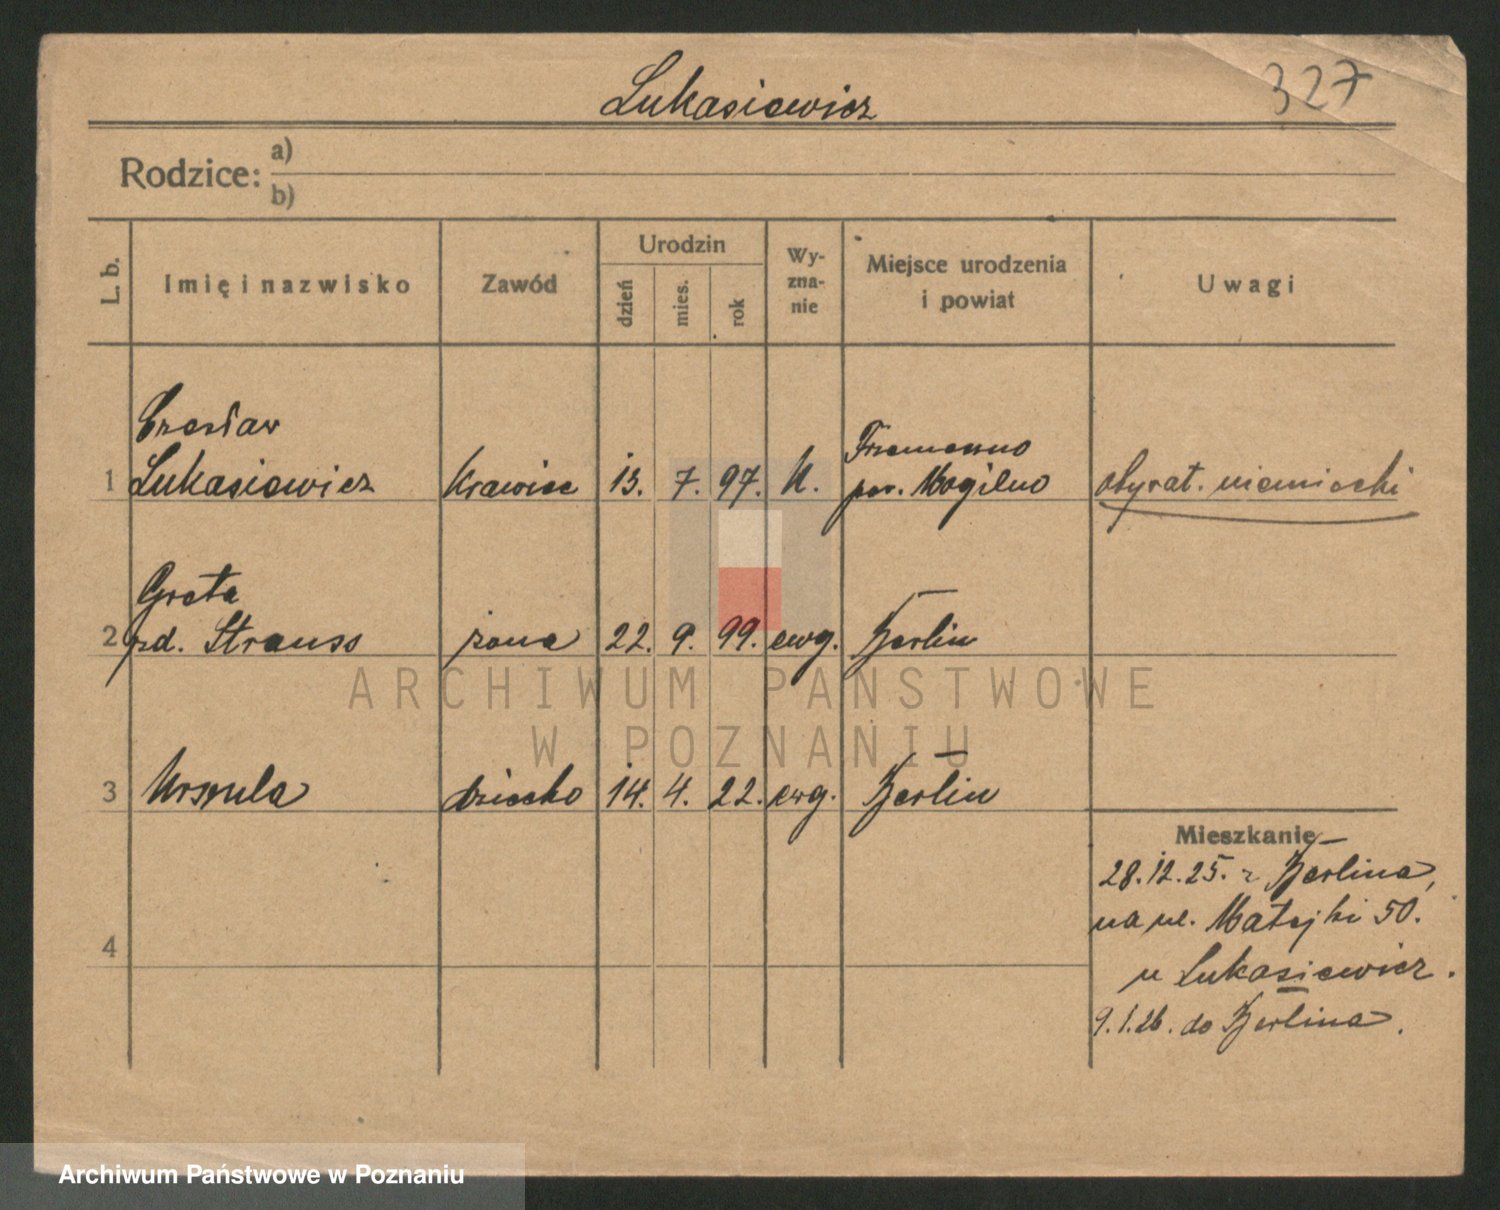 Łukasiewicz
327
Rodzice: a)
b)
L. b.
Imię i nazwisko
Zawód
Urodzin
dzień
mies.
rok
Wy-
zna-
nie
Miejsce urodzenia
i powiat
Uwagi
Czesław
1 Łukasiewicz krawiec 13. 7. 97. k. Trzemeszno
pow. Mogilno obywat. niemiecki
Greta
2 rd. Strauss żona 22. 9. 99. ewg. Berlin
ARCHIWUM PAŃSTWOWE
W POZNANIU
3 Urszula dziecko 14. 4. 22. ewg. Berlin
4
Mieszkanie
28.12.25. z Berlina,
na ul. Matejki 50.
u Łukasiewicz.
9.1.26. do Berlina.
Archiwum Państwowe w Poznaniu